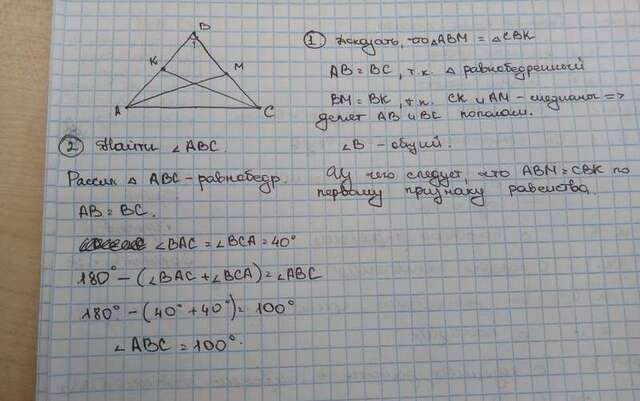 B
K
M
A
C
① Доказать, что △ABM = △CBK
AB = BC, т.к. △ равнобедренный
BM = BK, т.к. CK и AM - медианы =>
делят AB и BC пополам.
∠B - общий.
Из чего следует, что ABM = CBK по
первому признаку равенства.
② Найти ∠ABC.
Рассм △ ABC - равнобедр.
AB = BC.
∠BAC = ∠BCA = 40°
180° - (∠BAC + ∠BCA) = ∠ABC
180° - (40° + 40°) = 100°
∠ABC = 100°.